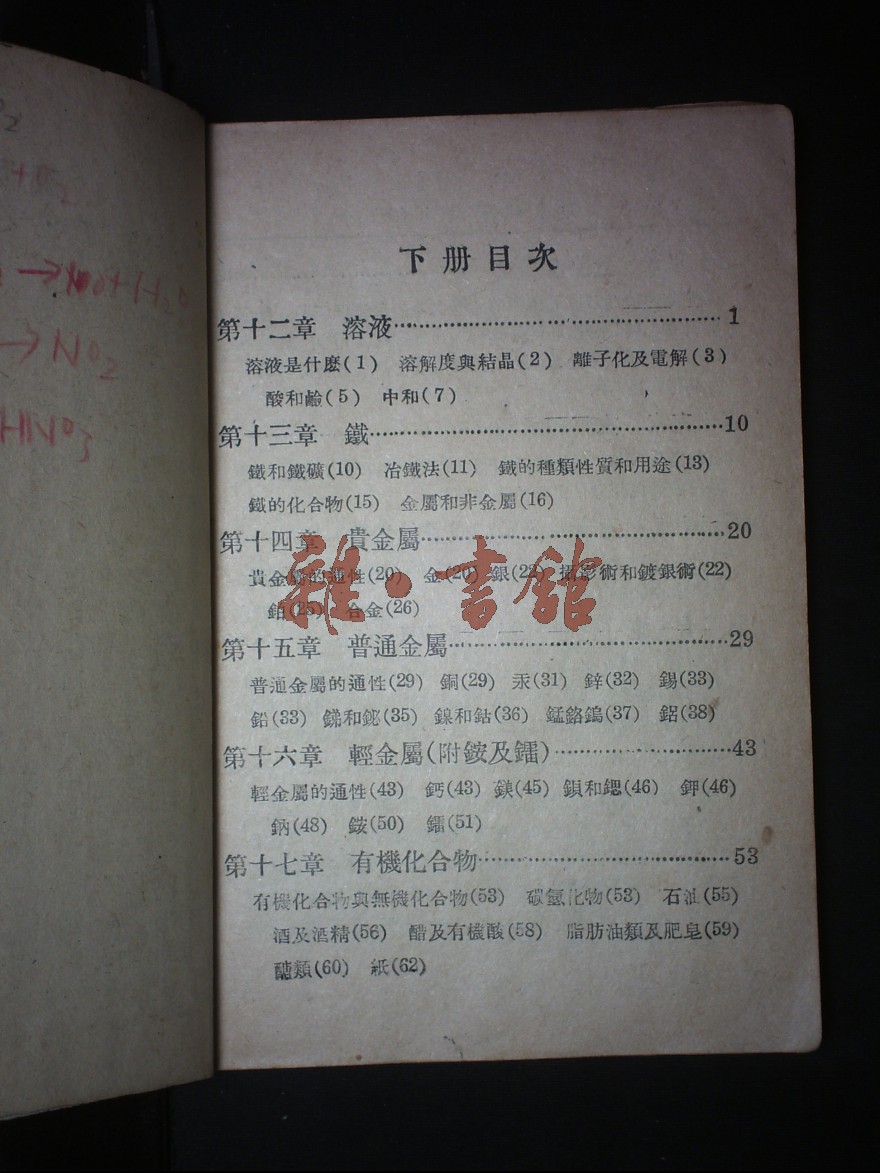 O2
+O2
→ +H2O
→NO2
HNO3
下册目次
第十二章 溶液 1
溶液是什麽(1) 溶解度與結晶(2) 離子化及電解(3)
酸和鹼(5) 中和(7)
第十三章 鐵 10
鐵和鐵礦(10) 冶鐵法(11) 鐵的種類性質和用途(13)
鐵的化合物(15) 金屬和非金屬(16)
第十四章 貴金屬 20
貴金屬的通性(20) 金(20) 銀(22) 攝影術和鍍銀術(22)
鉑(25) 合金(26)
雜·書館
第十五章 普通金屬 29
普通金屬的通性(29) 銅(29) 汞(31) 鋅(32) 錫(33)
鉛(33) 銻和鉍(35) 鎳和鈷(36) 錳鉻鎢(37) 鋁(38)
第十六章 輕金屬(附銨及鐳) 43
輕金屬的通性(43) 鈣(43) 鎂(45) 鋇和鍶(46) 鉀(46)
鈉(48) 銨(50) 鐳(51)
第十七章 有機化合物 53
有機化合物與無機化合物(53) 碳氫化物(53) 石油(55)
酒及酒精(56) 醋及有機酸(58) 脂肪油類及肥皂(59)
醣類(60) 紙(62)